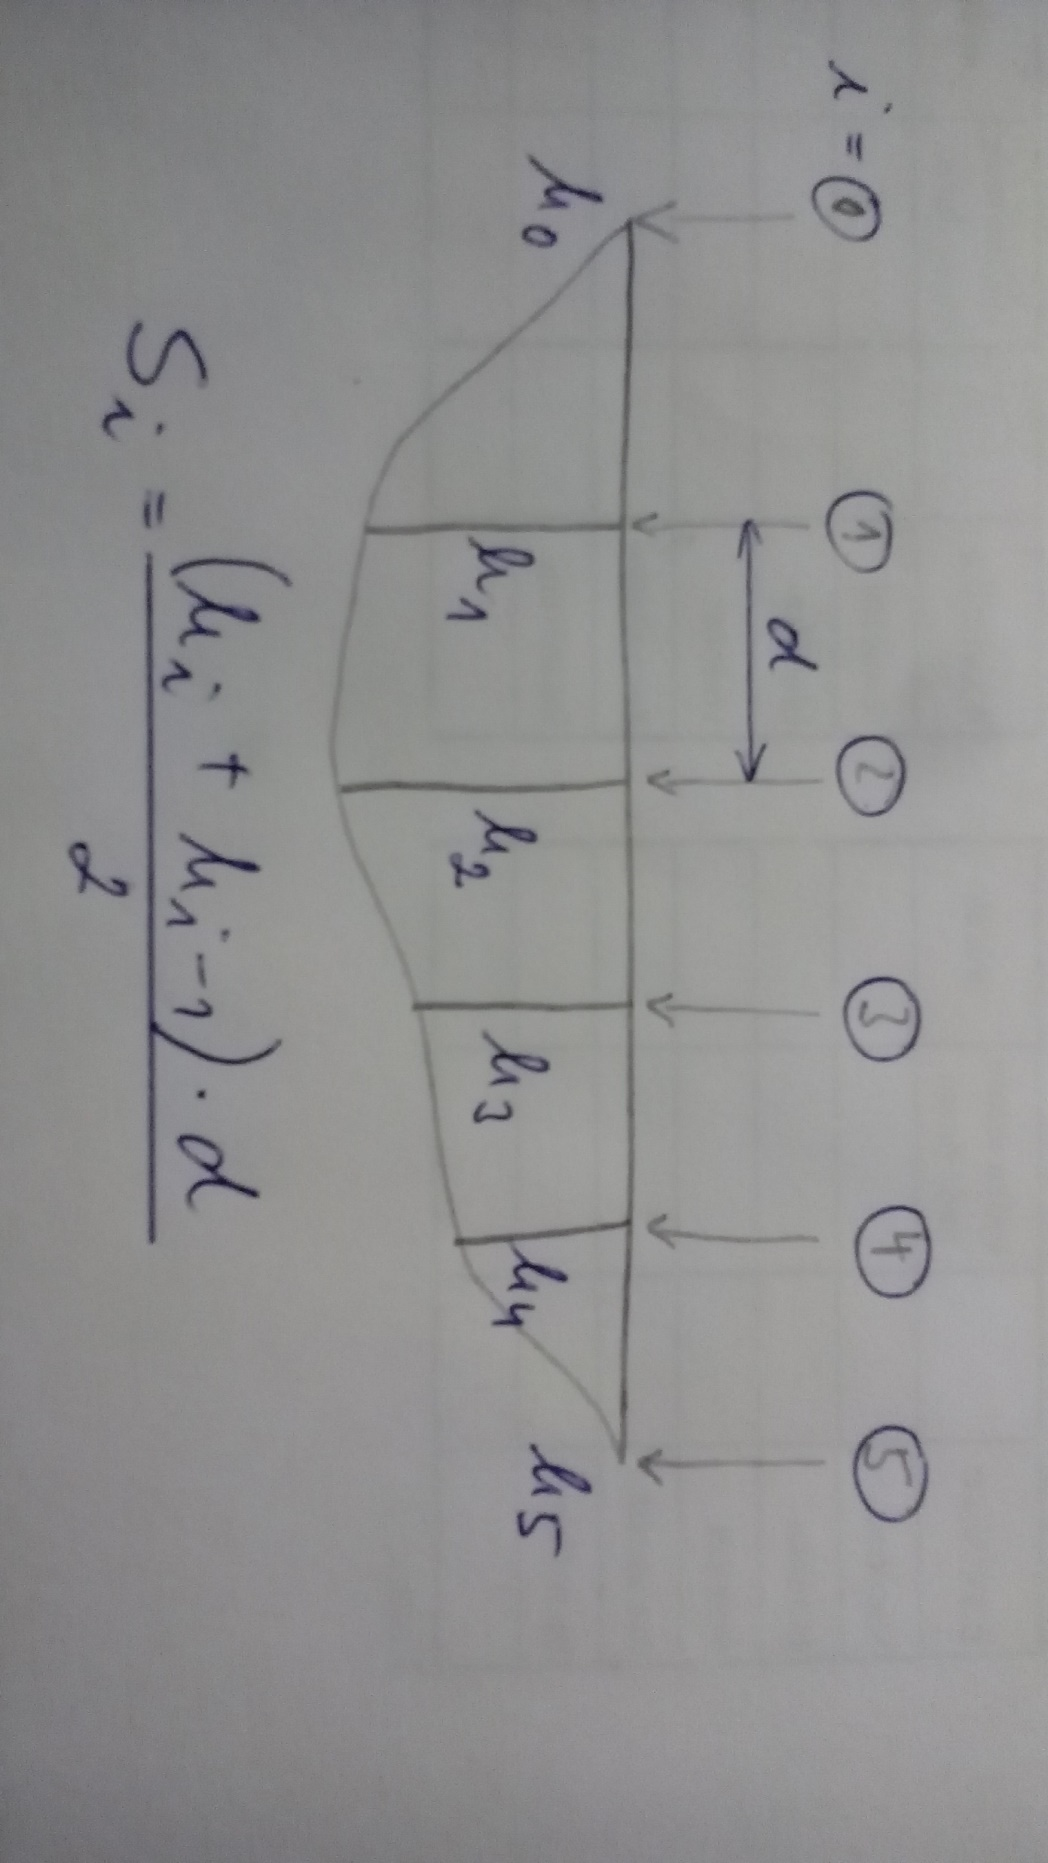 i = 0 1 2 3 4 5
d
h0 h1 h2 h3 h4 h5
Si = (hi + hi-1) · d
2